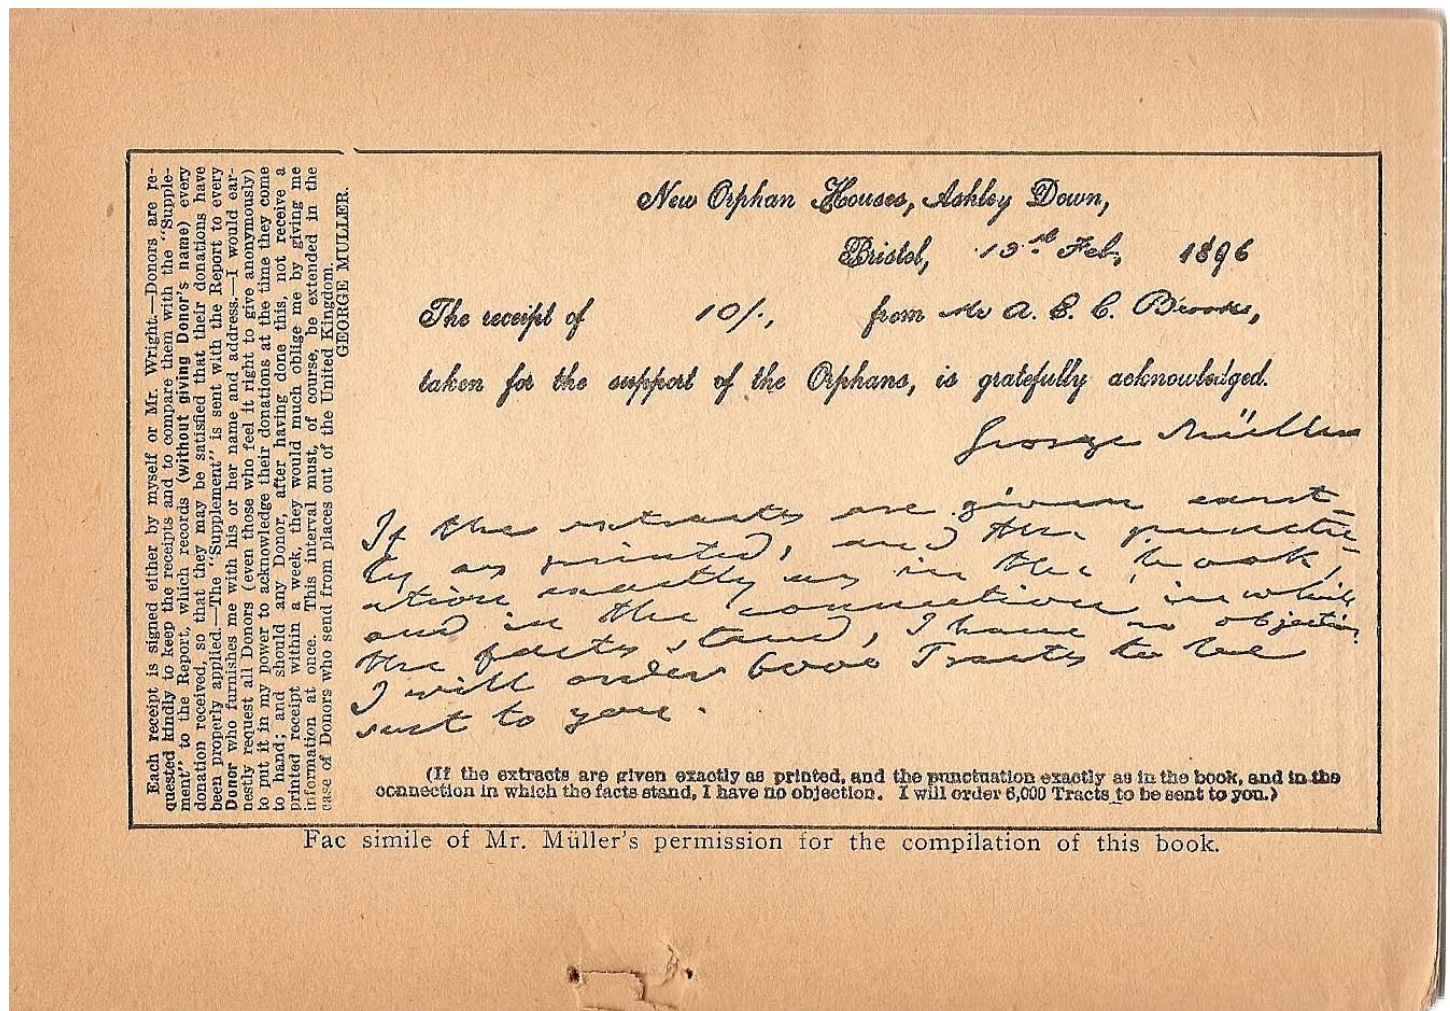 Each receipt is signed either by myself or Mr. Wright.—Donors are re-
quested kindly to keep the receipts and to compare them with the "Supple-
ment" to the Report, which records (without giving Donor's name) every
donation received, so that they may be satisfied that their donations have
been properly applied.—The "Supplement" is sent with the Report to every
Donor who furnishes me with his or her name and address.—I would ear-
nestly request all Donors (even those who feel it right to give anonymously)
to put it in my power to acknowledge their donations at the time they come
to hand; and should any Donor, after having done this, not receive a
printed receipt within a week, they would much oblige me by giving me
information at once. This interval must, of course, be extended in the
case of Donors who send from places out of the United Kingdom.
GEORGE MULLER.
New Orphan Houses, Ashley Down,
Bristol, 13 Feb, 1896
The receipt of 10/., from Mr A. E. C. Brooks,
taken for the support of the Orphans, is gratefully acknowledged.
George Müller
If the extracts are given exact-
ly as printed, and the punctu-
ation exactly as in the book,
and in the connection in which
the facts stand, I have no objection.
I will order 6000 Tracts to be
sent to you.
(If the extracts are given exactly as printed, and the punctuation exactly as in the book, and in the
connection in which the facts stand, I have no objection. I will order 6,000 Tracts to be sent to you.)
Fac simile of Mr. Müller's permission for the compilation of this book.